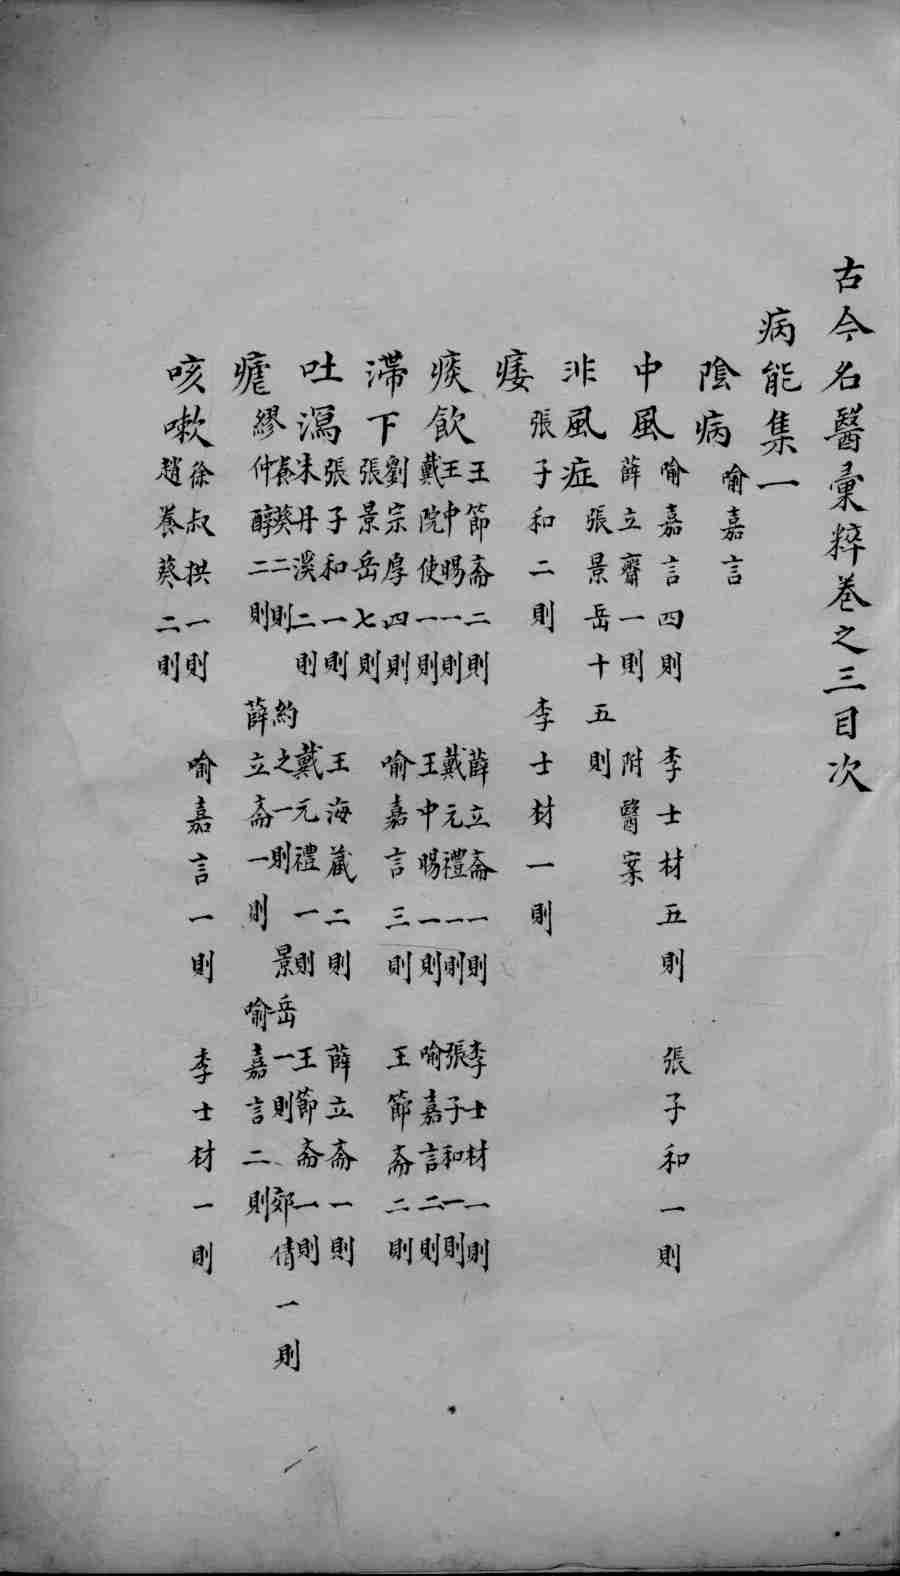 古今名醫彙粹卷之三目次
病能集一
陰病 喻嘉言
中風 喻嘉言四則 李士材五則 張子和一則
薛立齋一則 附醫案
非風症 張景岳十五則
痿 張子和二則 李士材一則
痰飲 王節齋二則 薛立齋一則 李士材一則
王中暘一則 戴元禮一則 張子和一則
戴院使一則 王中暘一則 喻嘉言二則
滯下 劉宗厚四則 喻嘉言三則 王節齋二則
張景岳七則
吐瀉 張子和一則 王海藏二則 薛立斋一則
朱丹溪二則 戴元禮一則 王節斋一則
瘧 養葵二則 約之一則 景岳一則 郊倩一則
繆仲醇二則 薛立斋一則 喻嘉言二則
咳嗽 徐叔拱一則 喻嘉言一則 李士材一則
趙養葵二則